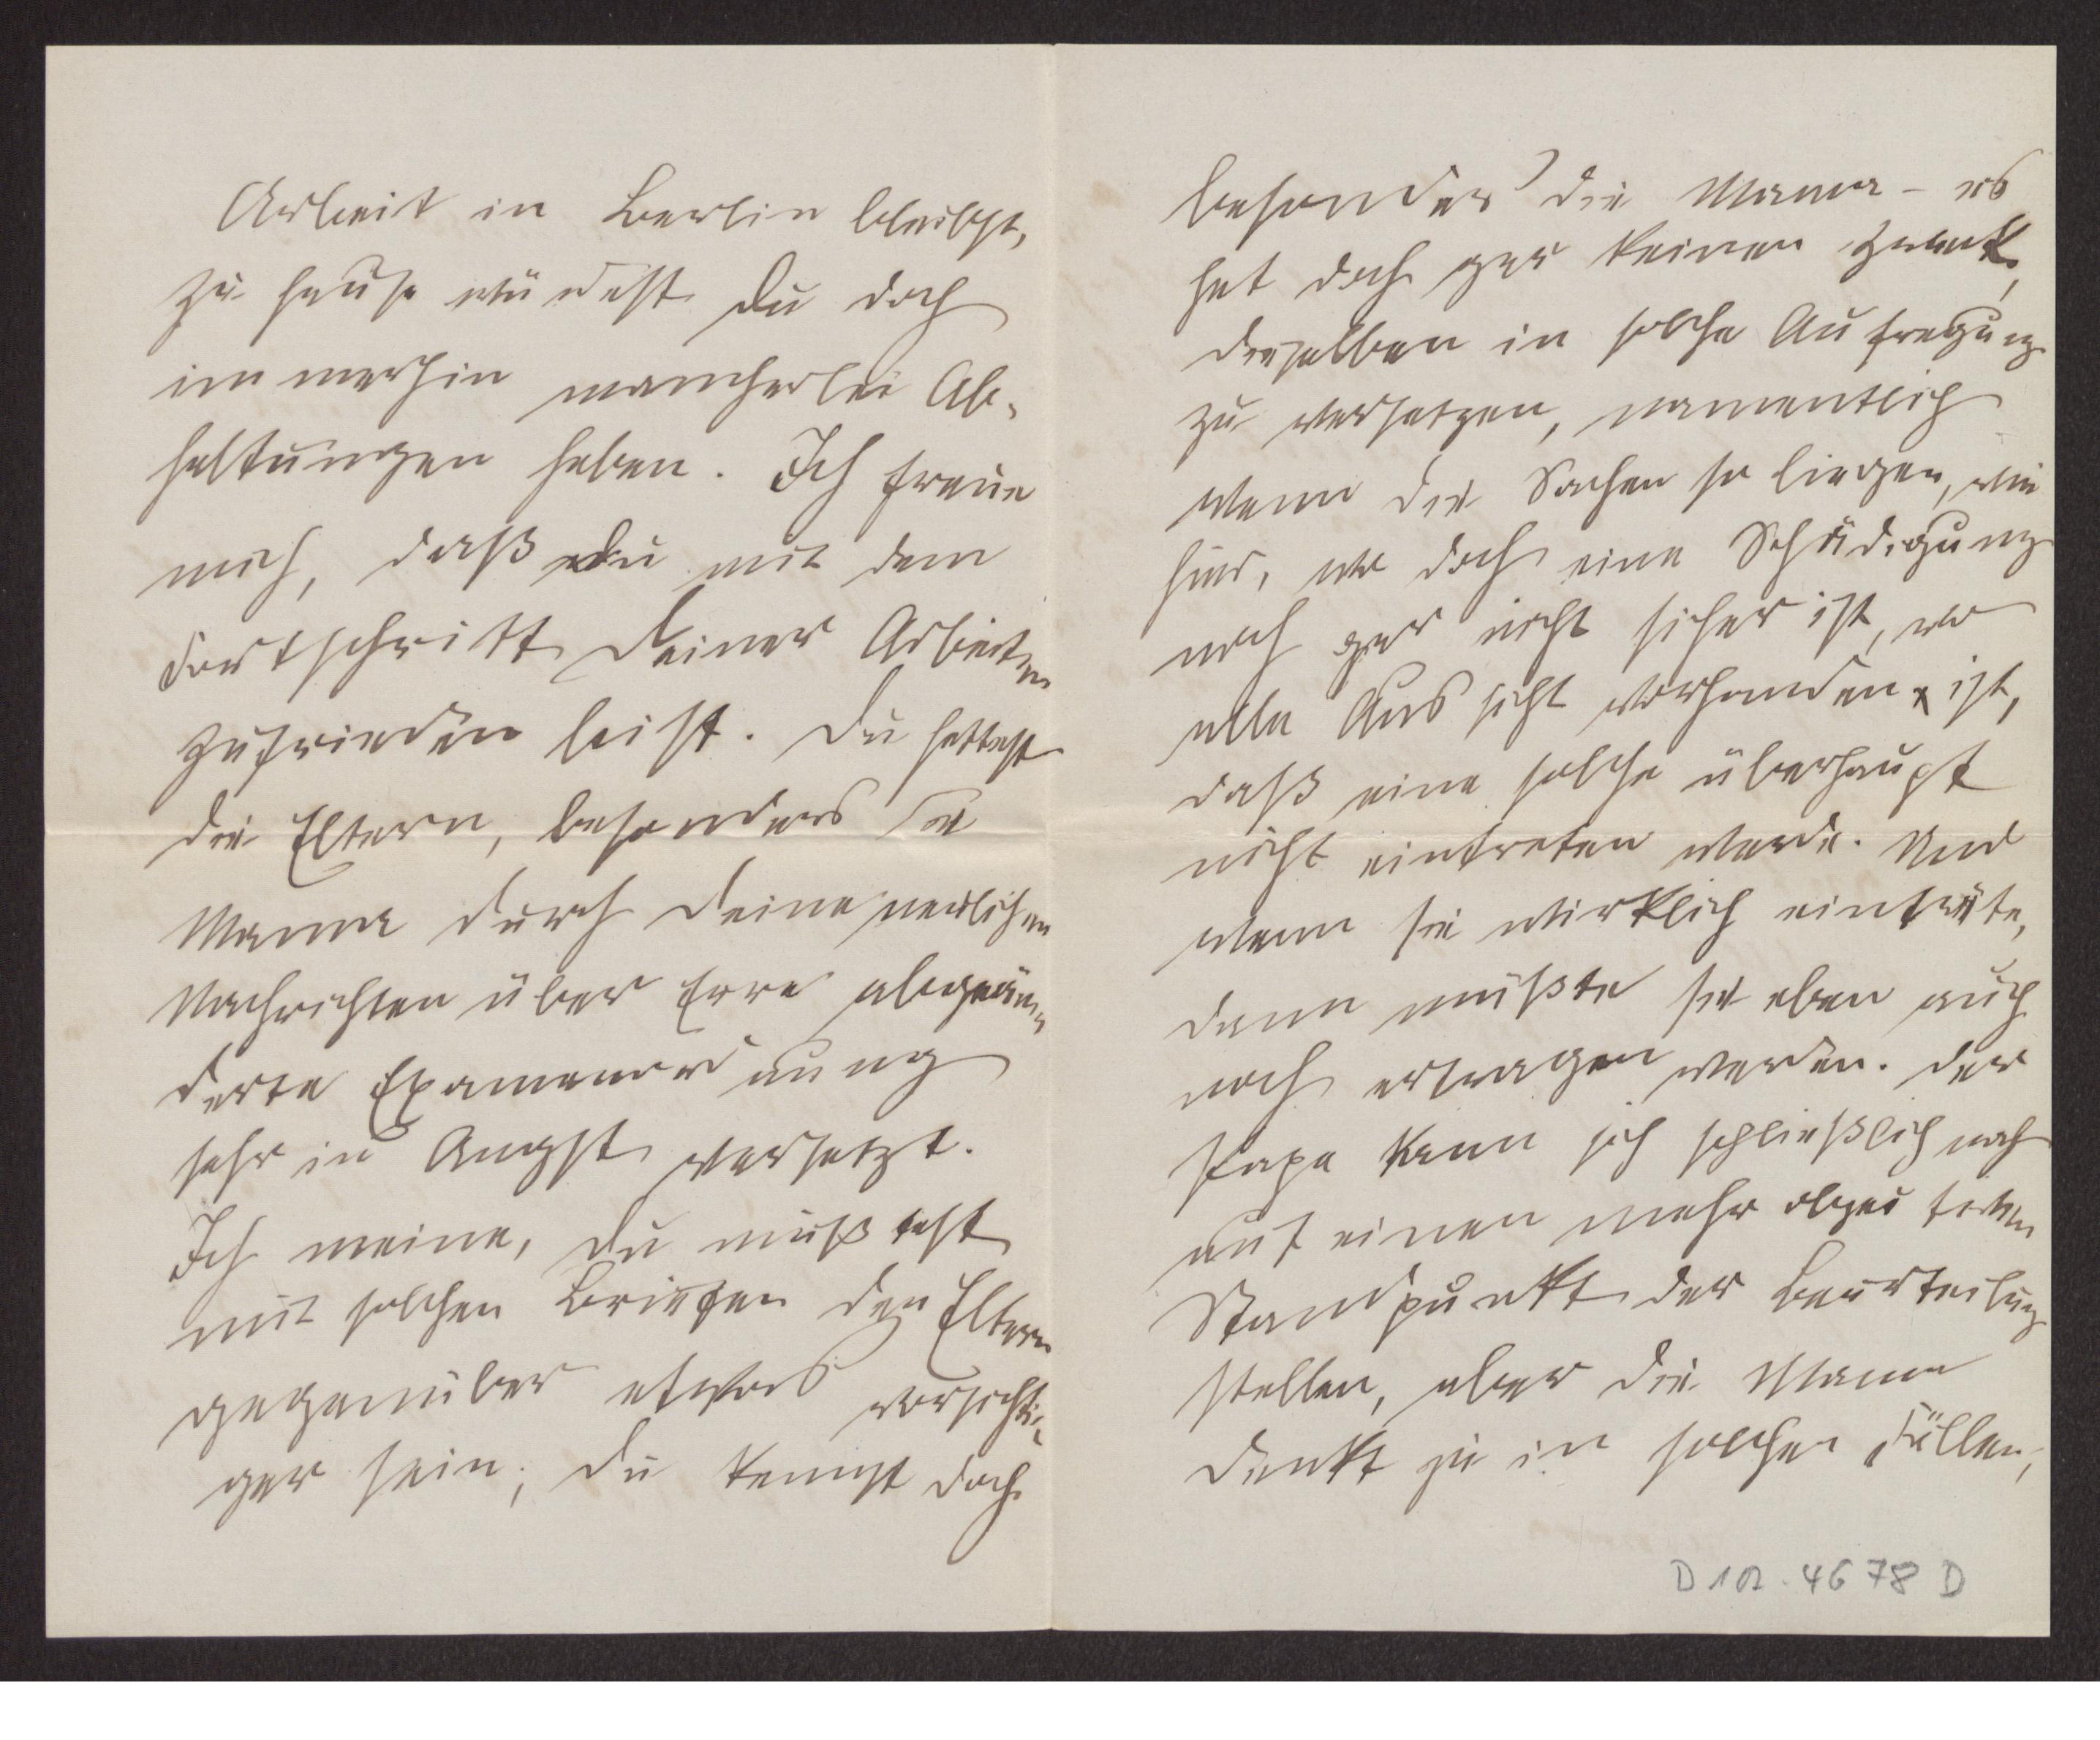 Arbeit in Berlin bleibst,
zu Hause würdest Du doch
immerhin mancherlei Ab-
haltungen haben. Ich freue
mich, daß Du mit dem
Fortschritt Deiner Arbeiten
zufrieden bist. Du hattest
die Eltern, besonders die
Mama durch Deine neulichen
Nachrichten über Eure abgeän-
derte Examenordnung
sehr in Angst versetzt.
Ich meine, Du müßtest
mit solchen Briefen den Eltern
gegenüber etwas vorsichti-
ger sein; Du kennst doch
besonders die Mama - es
hat doch gar keinen Zweck,
dieselben in solche Aufregung
zu versetzen, namentlich
wenn die Sachen so liegen, wie
hier, wo doch eine Schädigung
noch gar nicht sicher ist, wo
alle Aussicht vorhanden ist,
daß eine solche überhaupt
nicht eintreten werde. Und
wenn sie wirklich einträte,
dann müßte sie eben auch
noch ertragen werden. Der
Papa kann sich schließlich noch
auf einen mehr objektiven
Standpunkt der Beurteilung
stellen, aber die Mama
denkt ja in solchen Fällen,
D 102. 4678 D